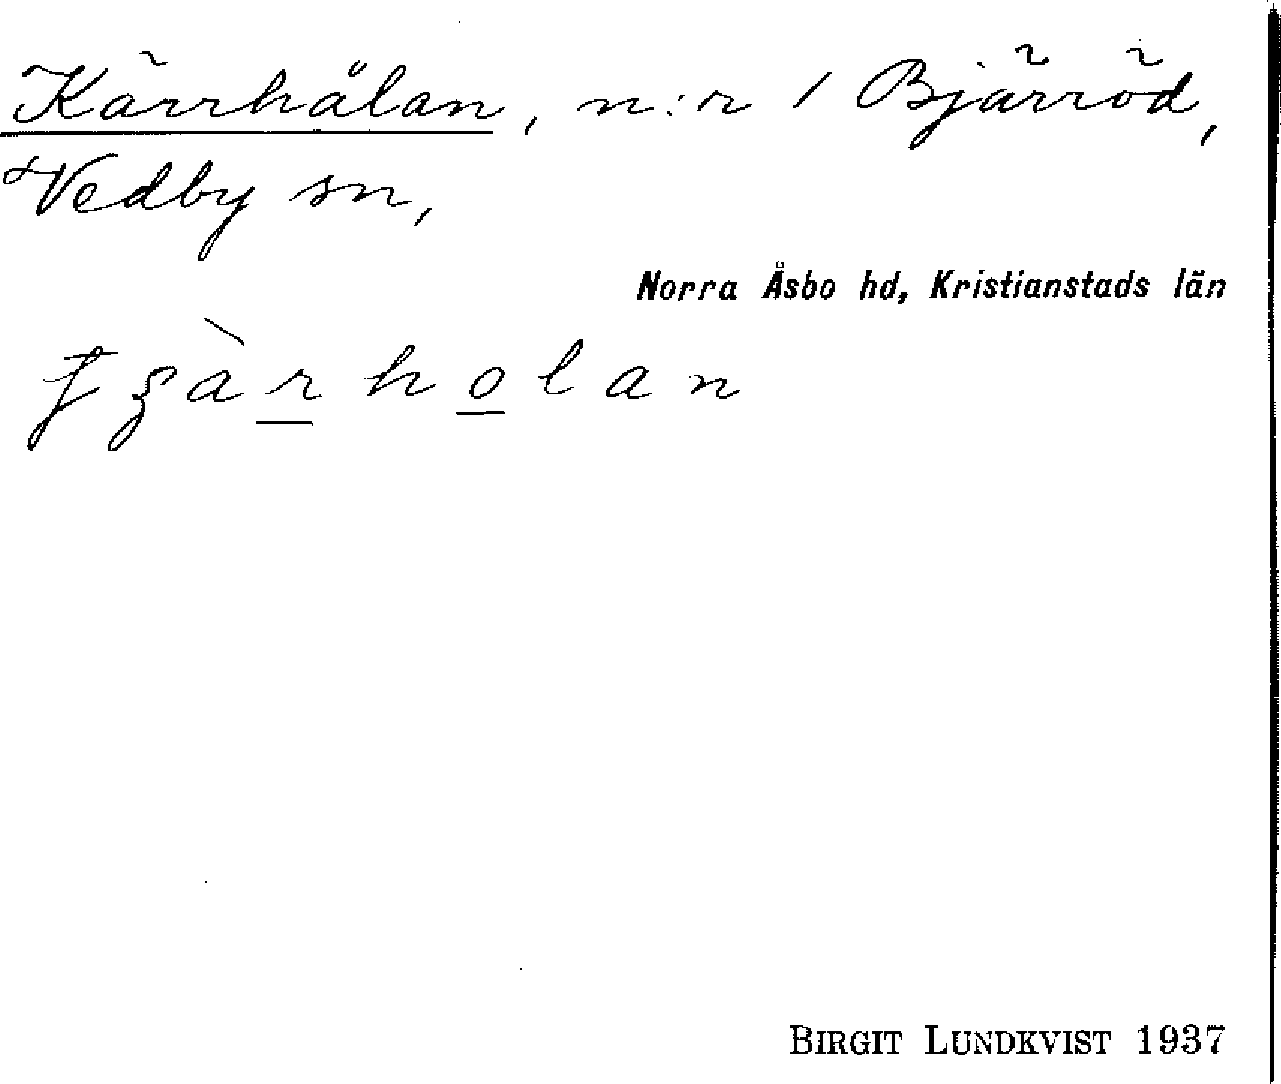 Kärrhålan, n:r 1 Bjärröd,
Vedby sn,
Norra Åsbo hd, Kristianstads län
BIRGIT LUNDKVIST 1937